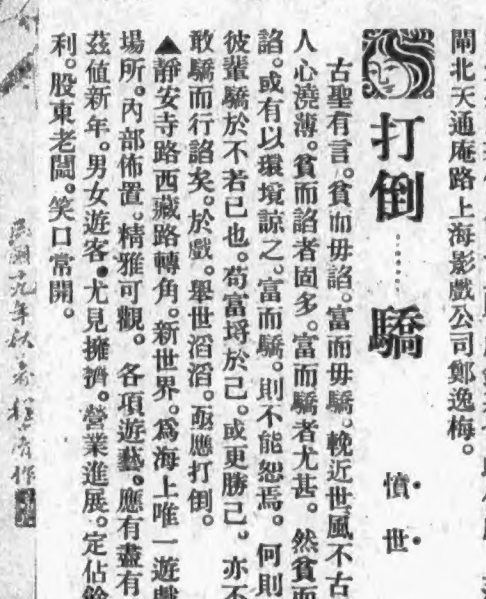 閘北天通庵路上海影戲公司鄭逸梅。
打倒……驕
憤世
古聖有言。貧而毋諂。富而毋驕。輓近世風不古
人心澆薄。貧而諂者固多。富而驕者尤甚。然貧而
諂。或有以環境諒之。富而驕。則不能恕焉。何則
彼輩驕於不若己也。苟富埒於己。或更勝己。亦不
敢驕而行諂矣。於戲。舉世滔滔。亟應打倒。
▲靜安寺路西藏路轉角。新世界。爲海上唯一遊戲
場所。內部佈置。精雅可觀。各項遊藝。應有盡有
茲值新年。男女遊客。尤見擁擠。營業進展。定佔餘
利。股東老闆。笑口常開。